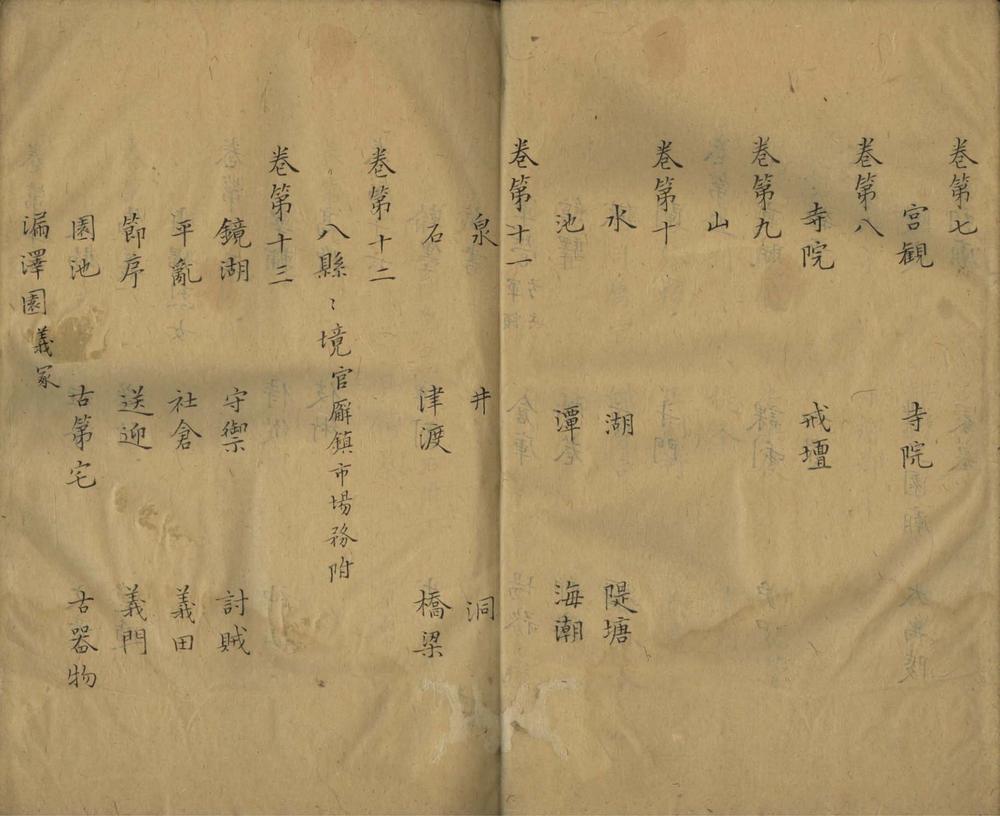 卷第七
宮觀 寺院
卷第八
寺院 戒壇
卷第九
山
卷第十
水 湖 隄塘
池 潭 海潮
卷第十一
泉 井 洞
石 津渡 橋梁
卷第十二
八縣〻境官廨鎮市場務附
卷第十三
鏡湖 守禦 討賊
平亂 社倉 義田
節序 送迎 義門
園池 古第宅 古器物
漏澤園義冢